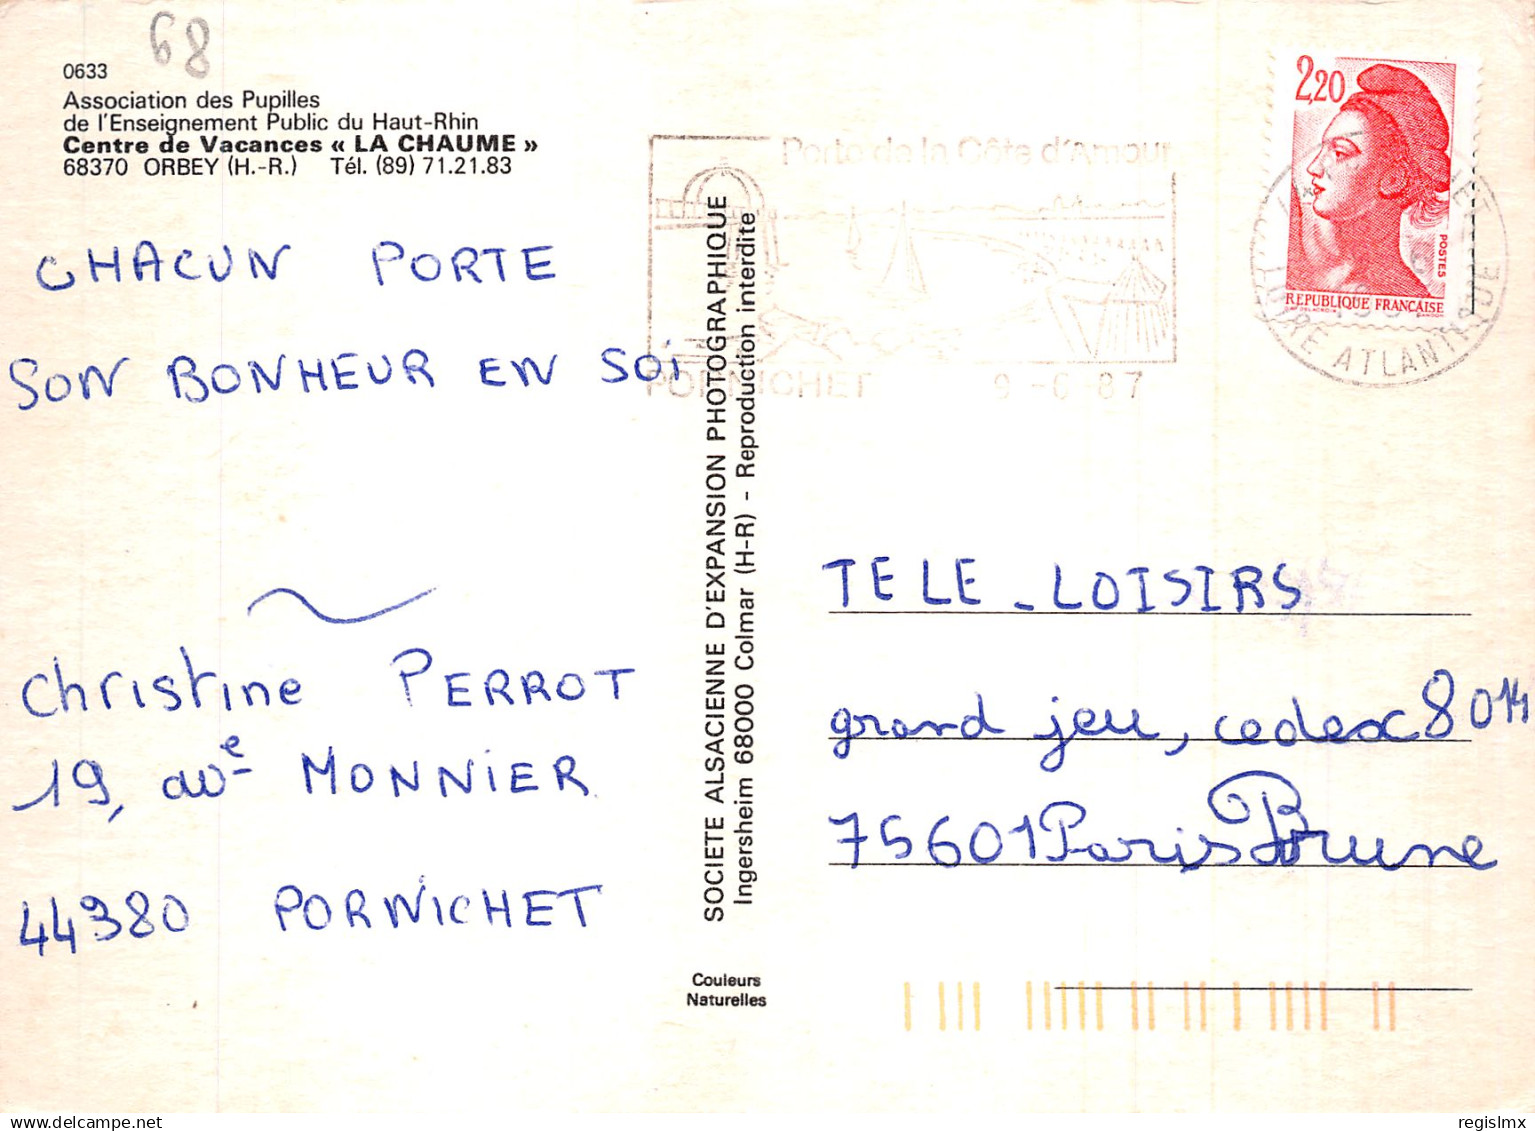 68
0633
Association des Pupilles
de l'Enseignement Public du Haut-Rhin
Centre de Vacances « LA CHAUME »
68370 ORBEY (H.-R.) Tél. (89) 71.21.83
CHACUN PORTE
SON BONHEUR EN SOi
Christine PERROT
19, ave MONNiER
44380 PORNICHET
SOCIETE ALSACIENNE D'EXPANSION PHOTOGRAPHIQUE
Ingersheim 68000 Colmar (H-R) - Reproduction interdite
Couleurs
Naturelles
Porte de la Côte d'Amour
PORNICHET 9-6 87
2,20
POSTES
REPUBLIQUE FRANÇAISE
LOIRE ATLANTIQUE
TELE-LOISIRS
grand jeu, cedex 8014
75601 Paris Brune
regislmx